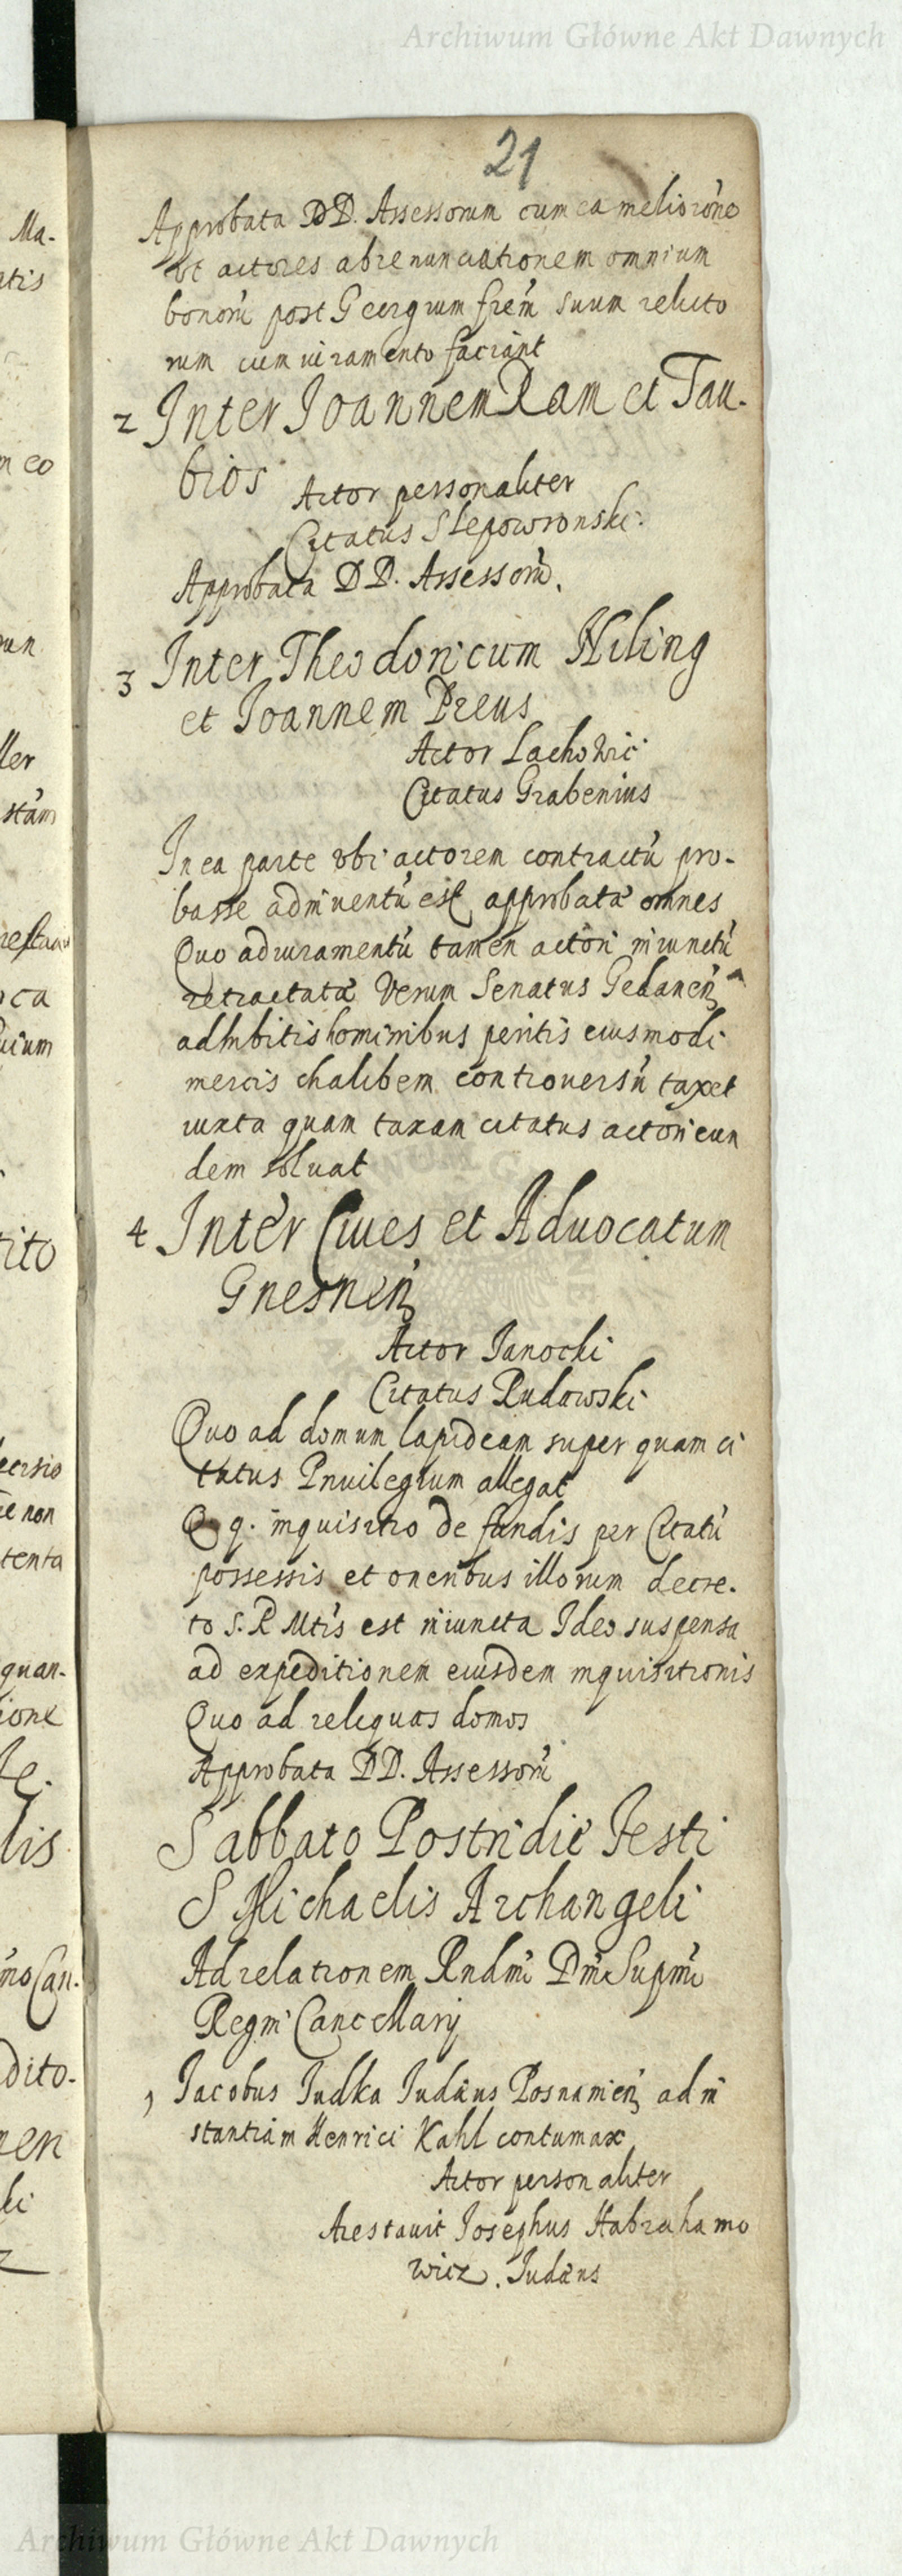 Archiwum Główne Akt Dawnych
21
Approbata DD. Assessorum cum ea meliorõne
Ut actores abrenunciationem omnium
bonorũ post Georgium frem̃ suum relicto
rum cum iuramento faciant
2 Inter Joannem Ram et Tau-
bios
Actor personaliter
Citatus Slepowronski
Approbata DD. Assessorũ.
3 Inter Theodoricum Hiling
et Joannem Preus
Actor Lachowic
Citatus Grabenius
In ea parte ubi actorem contractũ pro-
basse adinventũ est approbata omnes
Quo ad iuramentũ tamen actori iniunctũ
retractata Verum Senatus Gedanen̄
adhibitis hominibus peritis eiusmodi
mercis chalibem controversũ taxet
iuxta quam taxam citatus actori eun
dem soluat
4 Inter Cives et Advocatum
Gnesnen̄
Actor Janocki
Citatus Rudawski
Quo ad domum lapideam super quam ci
tatus Privilegium allegat
q. inquisitio de fundis per Citatũ
possessis et oneribus illorum decre-
to S. R Mtis est iniuncta Ideo suspensa
ad expeditionem eiusdem inquisitionis
Quo ad reliquas domos
Approbata DD. Assessorũ
Sabbato Postridie Festi
S Michaelis Archangeli
Ad relationem Rndmi Dni Supmi
Regni Cancellarij
1 Jacobus Judka Judæus Posnanien̄ ad in
stantiam Henrici Kahl contumax
Actor personaliter
Arestavit Josephus Habrahamo
wicz. Judæus
Ma-
atis
m eo
ller
stam̃
oca
tito
ecisio
ie non
tenta
quan-
ione
lis
Can-
dito-
nen
Archiwum Główne Akt Dawnych